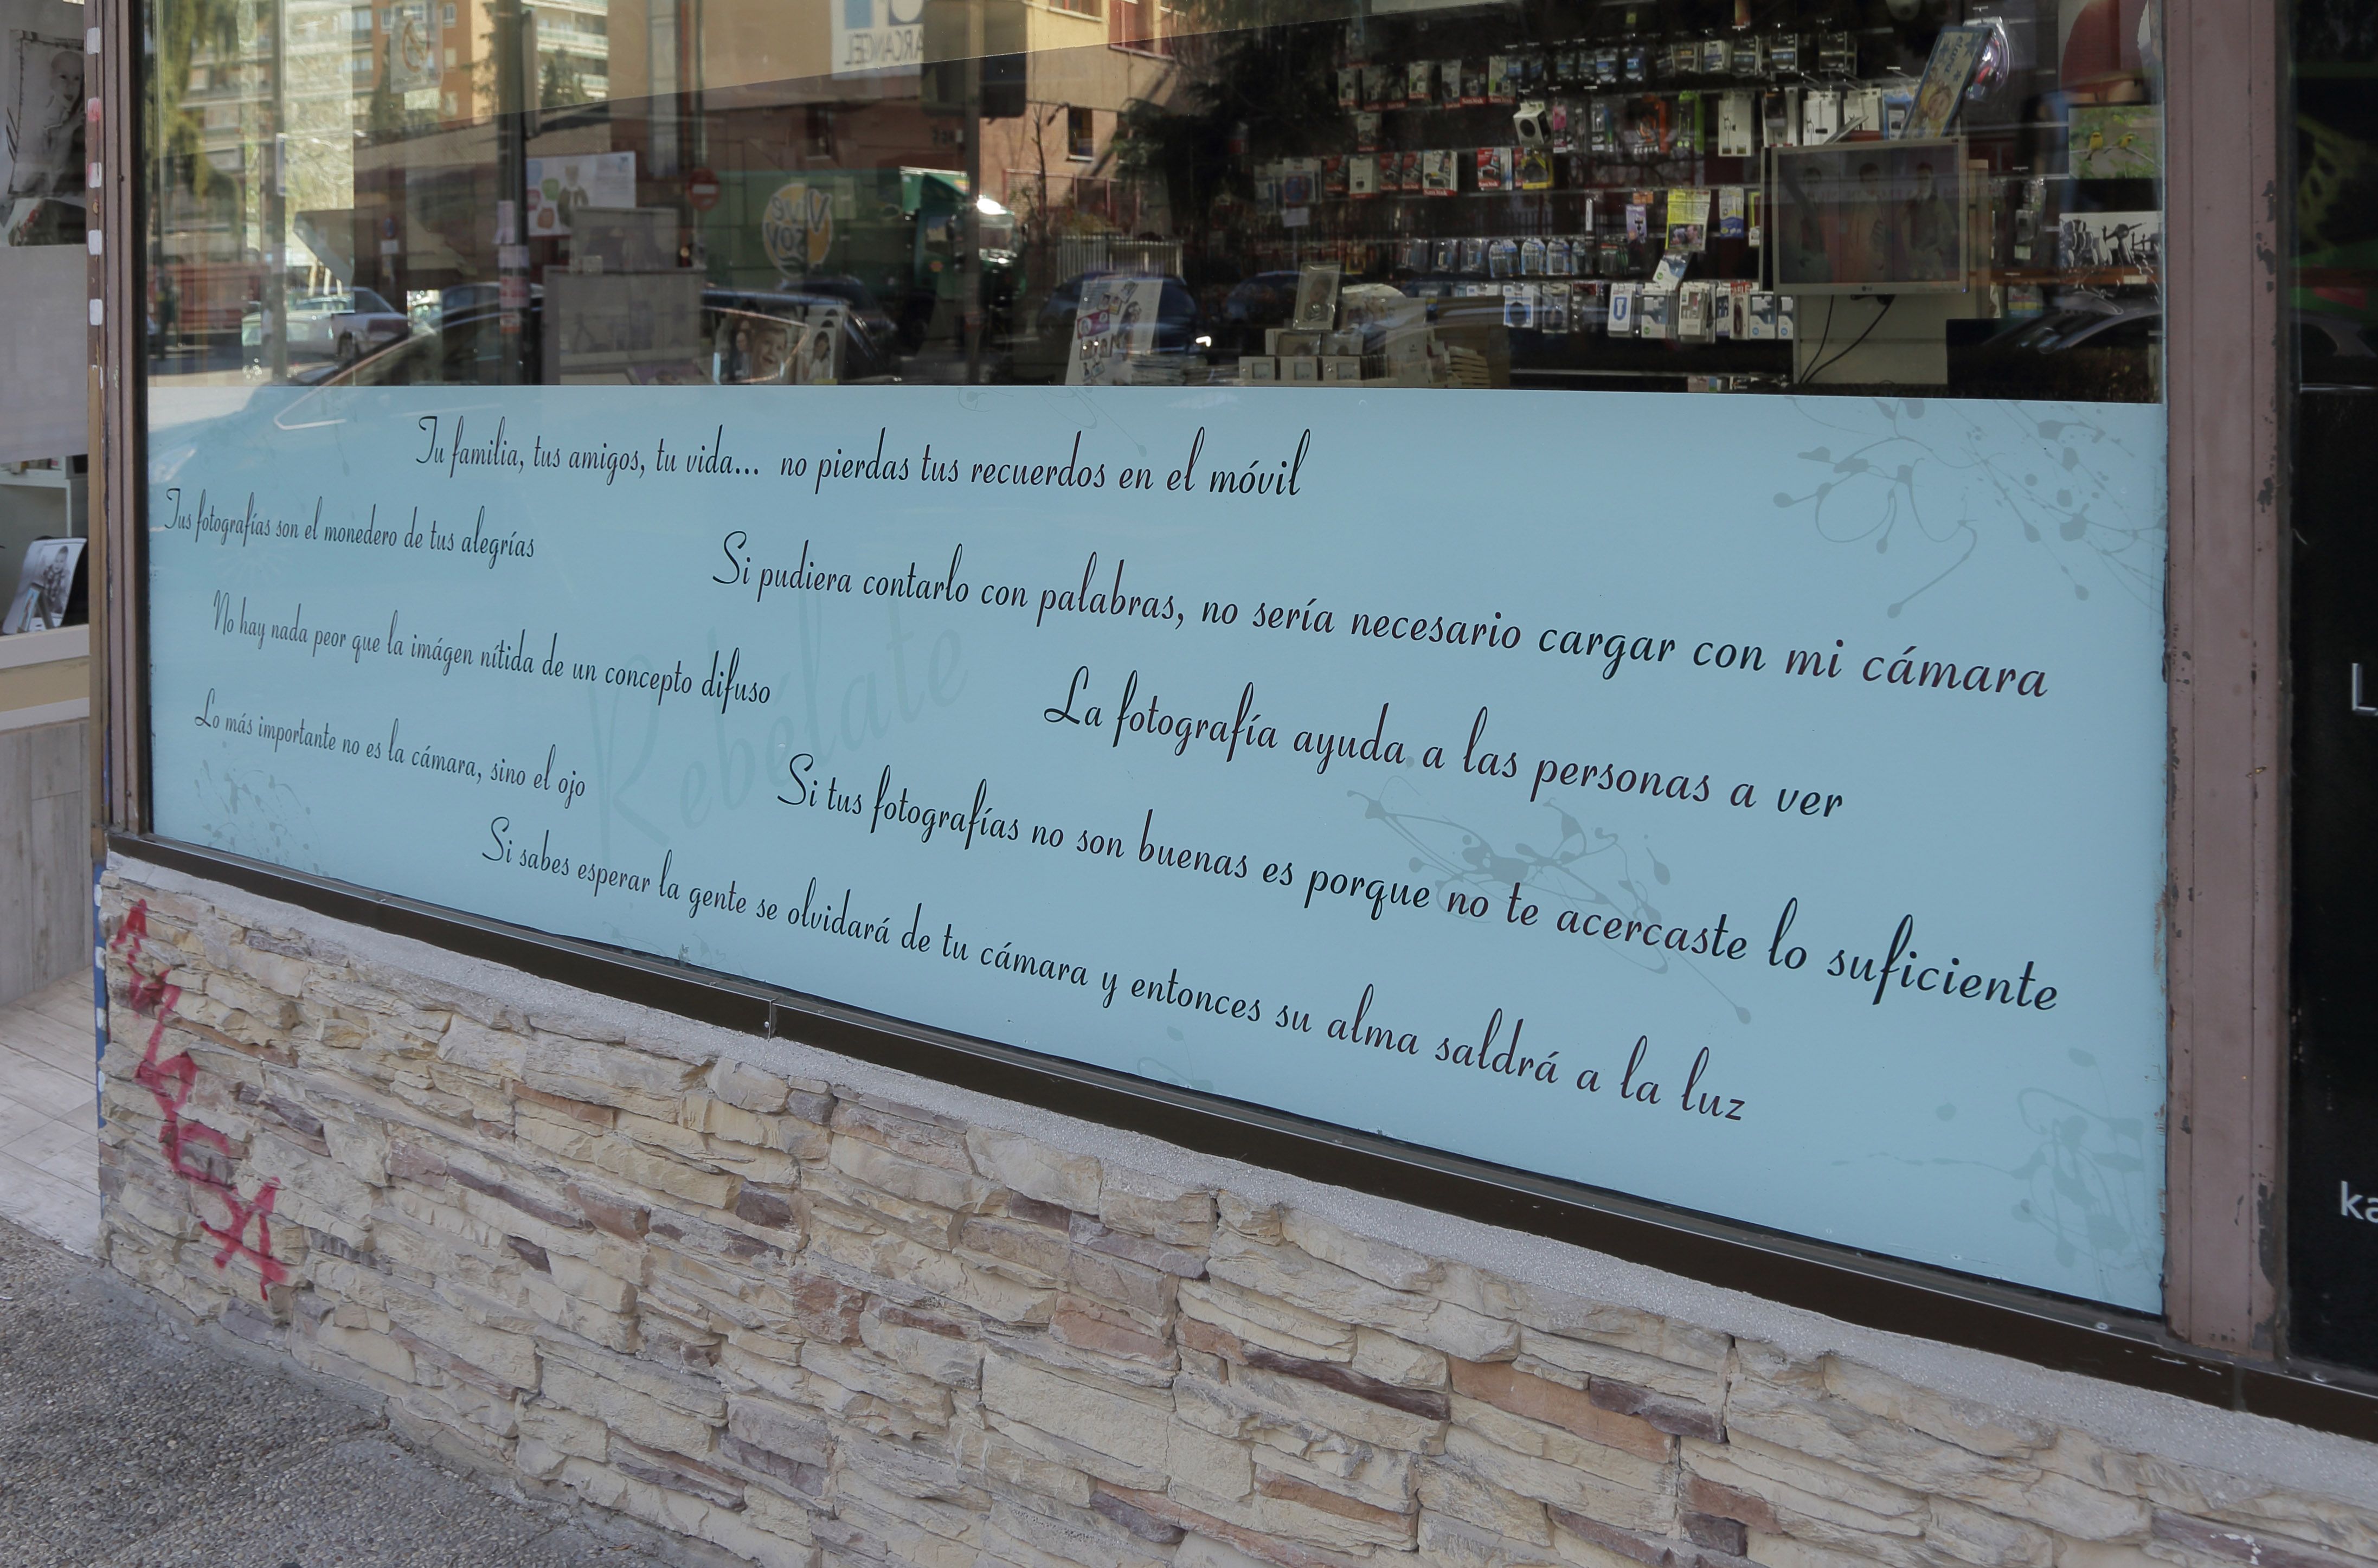 ARCANGEL
Vive
Tu familia, tus amigos, tu vida... no pierdas tus recuerdos en el móvil
Tus fotografías son el monedero de tus alegrías
Si pudiera contarlo con palabras, no sería necesario cargar con mi cámara
No hay nada peor que la imágen nítida de un concepto difuso
Rebélate
La fotografía ayuda a las personas a ver
Lo más importante no es la cámara, sino el ojo
Si tus fotografías no son buenas es porque no te acercaste lo suficiente
Si sabes esperar la gente se olvidará de tu cámara y entonces su alma saldrá a la luz
L
ka